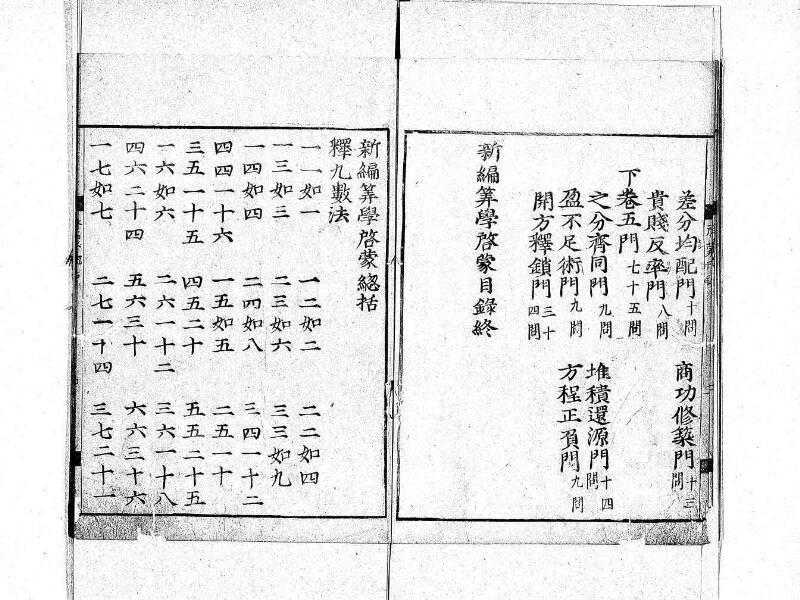 差分均配門十問 商功修築門十三問
貴賤反率門八問
下卷五門七十五問
之分齊同門九問 堆積還源門十四問
盈不足術門九問 方程正負門九問
開方釋鎖門三十四問
新編筭學啓蒙目錄終
新編筭學啓蒙總括
釋九數法
一一如一 一二如二 二二如四
一三如三 二三如六 三三如九
一四如四 二四如八 三四一十二
四四一十六 一五如五 二五一十
三五一十五 四五二十 五五二十五
一六如六 二六一十二 三六一十八
四六二十四 五六三十 六六三十六
一七如七 二七一十四 三七二十一